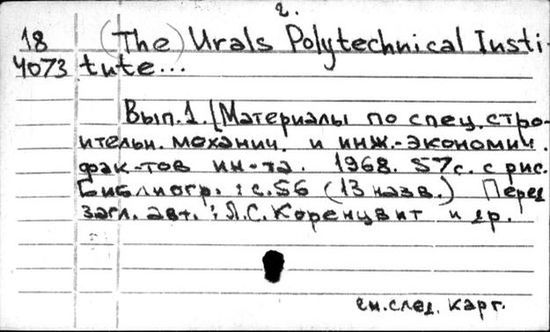 2.
18 (The) Urals Polytechnical Insti-
4073 tute...
Вып.1. [Материалы по спец. стро-
ительн. механич. и инж.-экономич.
фак-тов ин-та. 1968. 57с. с рис.
Библиогр.: с.56 (13 назв.) Перед
загл. авт.: Л.С. Коренцвит и др.
см. след. карт.